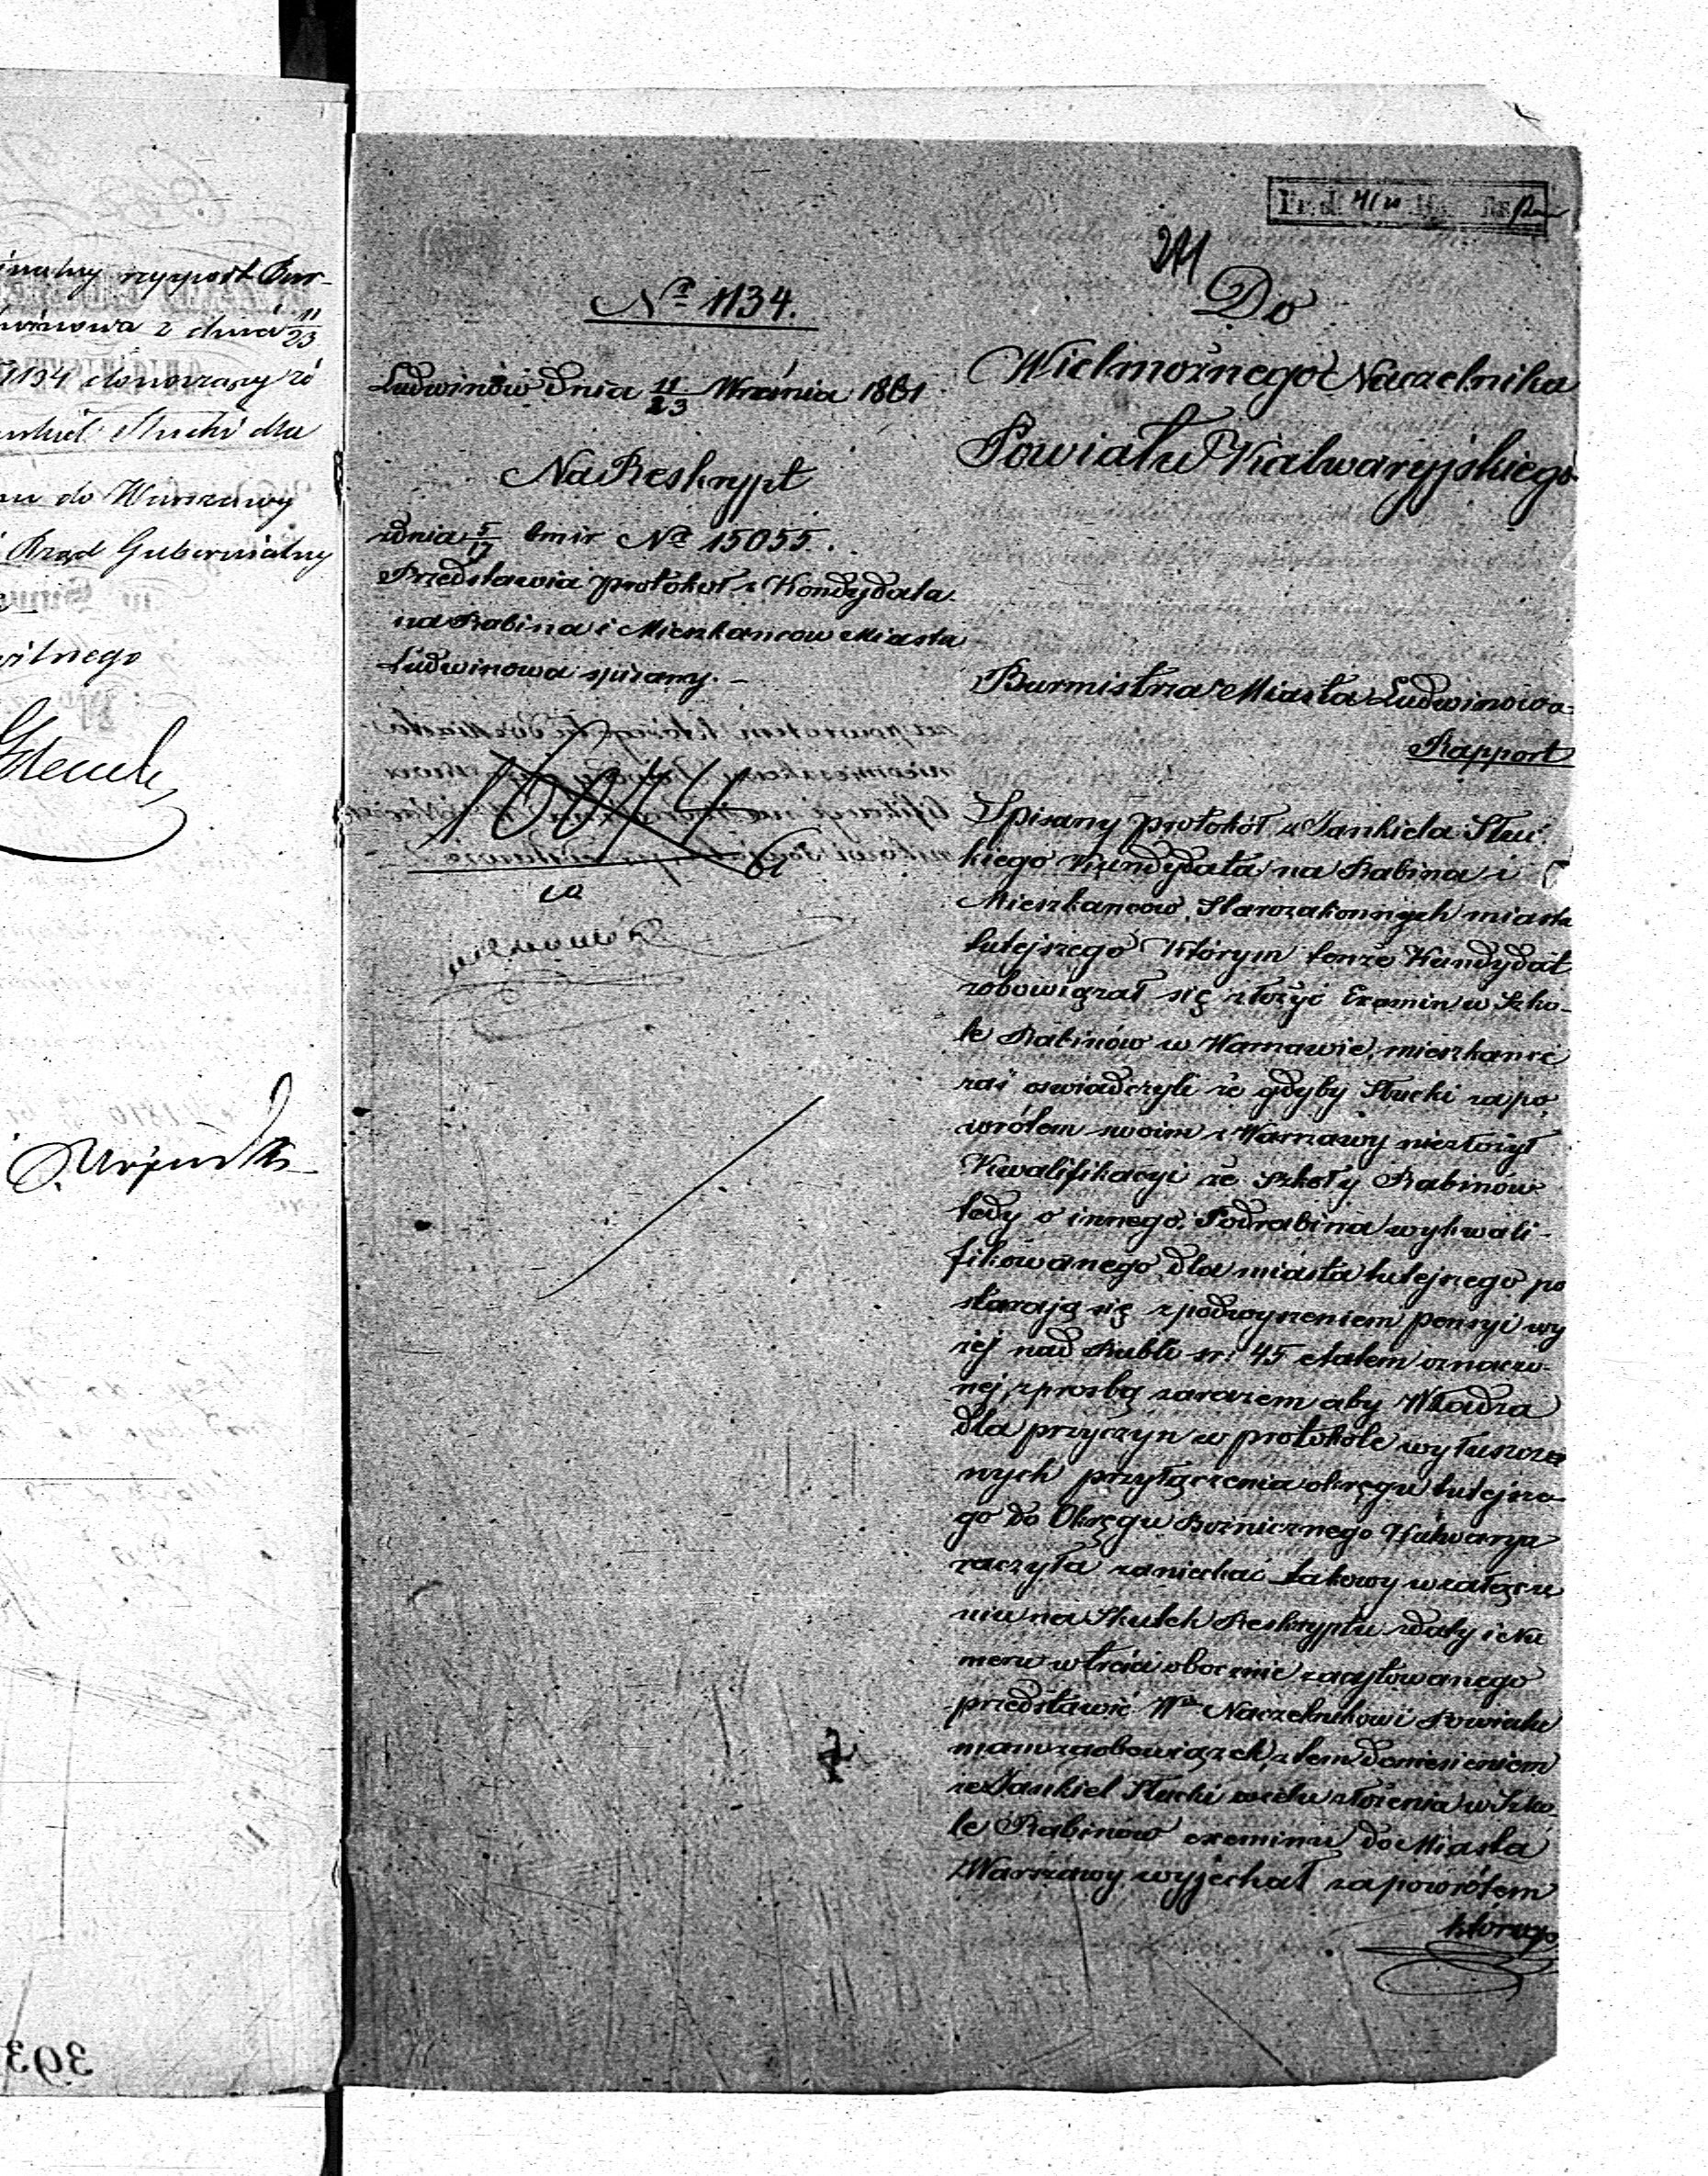 rapport Bur-
z dnia 11/23
1134 donoszący że
Słucki dla
do Warszawy
Rząd Gubernialny
241
№ 1134.
Ludwinów dnia 11/23 Września 1861
Na Reskrypt
dnia 5/17 bmir № 15055.
Przedstawia protokół z Kondydata
na Rabina i Mieszkancow Miasta
Ludwinowa spisany. –
Do
Wielmożnego Naczelnika
Powiatu Kalwaryjskiego
Burmistrza Miasta Ludwinowa
Rapport
Spisany protokół z Jankiela Słuc
kiego Kandydata na Rabina i
Mieszkancow Starozakonnych miasta
tutejszego którym tenże Kandydat
zobowiązał się złożyć Examin w Szko-
le Rabinów w Warszawie, mieszkance
zaś oswiadczyli że gdyby Słucki zapo
wrótem swoim z Warszawy niezłożył
Kwalifikacyi ze Szkoły Rabinów
tedy o innego Podrabina wykwali-
fikowanego dla miasta tutejszego po
starają się z podwyszeniem pensyi wy
żej nad Rubli sr: 45 etatem oznaczo-
nej, z prosbą zarazem aby Władza
dla przyczyn w protokóle wyłuszczo
nych przyłączenia okręgu tutejsze-
go do Okręgu Bożnicznego Kalwarya
raczyła zaniechać takowy w załącze
niu na Skutek Reskryptu daty i Nu
meru w treści obocznie zacytowanego
przedstawić Wmu Naczelnikowi Powiatu
mam zaobowiązek, z tem doniesieniem
że Jankiel Słucki w celu złożenia w Szko
le Rabinów exeminu do Miasta
Warszawy wyjechał zapowrótem
którego
393